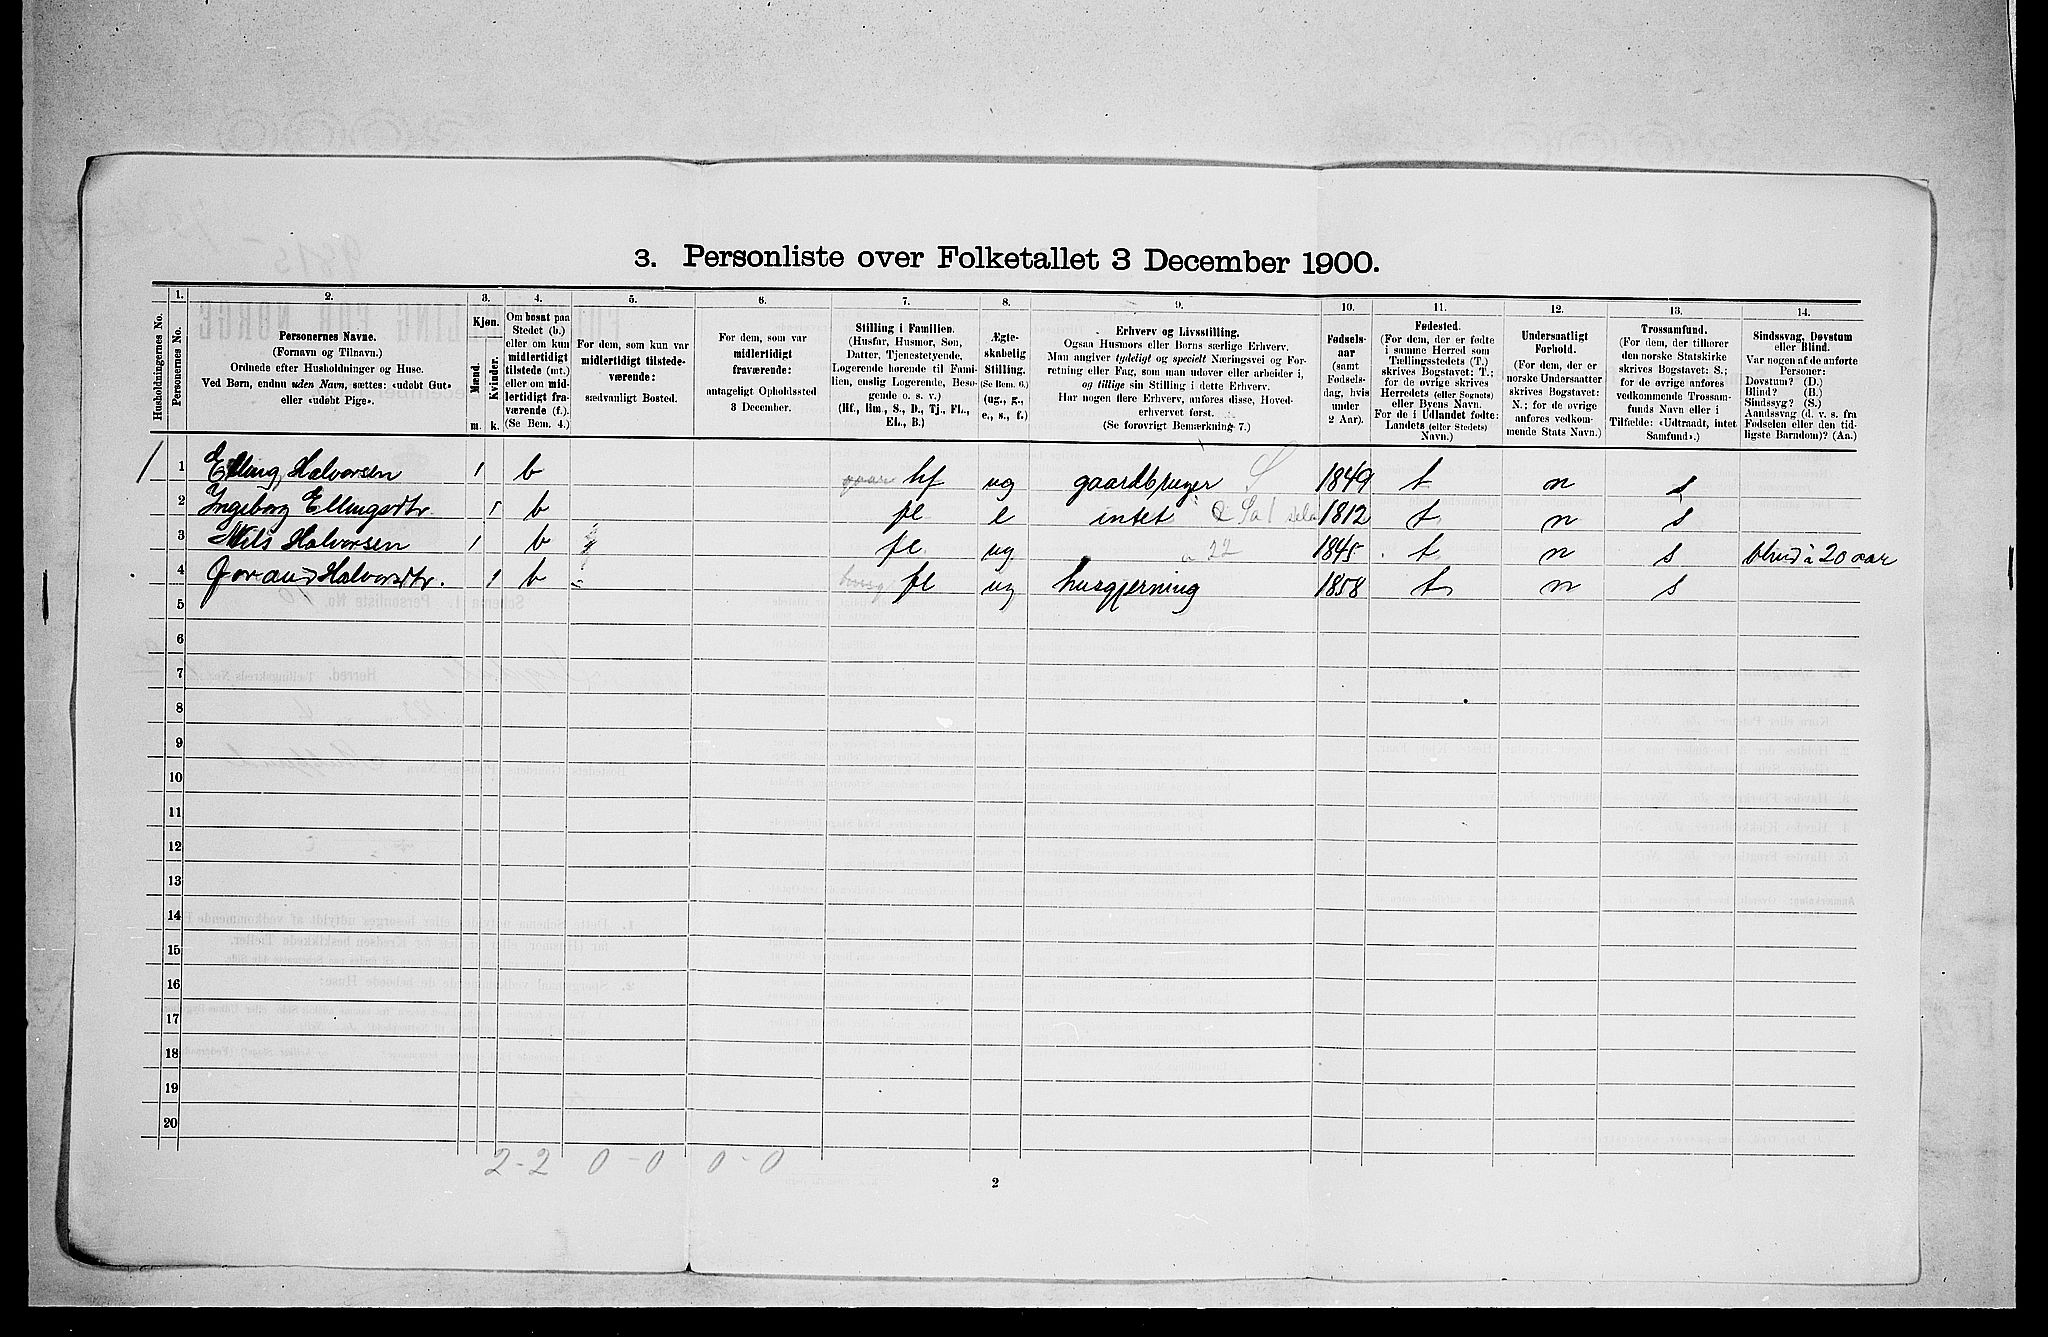 3. Personliste over Folketallet 3 December 1900.
Husholdningernes No.
1.
Personernes No.
2.
Personernes Navne.
(Fornavn og Tilnavn.)
Ordnede efter Husholdninger og Huse.
Ved Børn, endnu uden Navn, sættes: «udøbt Gut»
eller «udøbt Pige».
3.
Kjøn.
Mænd.
m.
Kvinder.
k.
4.
Om bosat paa
Stedet (b.)
eller om kun
midlertidigt
tilstede (mt.)
eller om mid-
lertidigt fra-
værende (f.).
(Se Bem. 4.)
5.
For dem, som kun var
midlertidigt tilstede-
værende:
sædvanligt Bosted.
6.
For dem, som var
midlertidigt
fraværende:
antageligt Opholdssted
3 December.
7.
Stilling i Familien.
(Husfar, Husmor, Søn,
Datter, Tjenestetyende,
Logerende hørende til Fami-
lien, enslig Logerende, Besø-
gende o. s. v.)
(Hf., Hm., S., D., Tj., FL.,
EL., B.)
8.
Ægte-
skabelig
Stilling.
(Se Bem. 6.)
(ug., g.,
e., s., f.)
9.
Erhverv og Livsstilling.
Ogsaa Husmors eller Børns særlige Erhverv.
Man angiver tydeligt og specielt Næringsvei og For-
retning eller Fag, som man udøver eller arbeider i,
og tillige sin Stilling i dette Erhverv.
Har nogen flere Erhverv, anføres disse, Hoved-
erhvervet først.
(Se forøvrigt Bemærkning 7.)
10.
Fødsels-
aar
(samt
Fødsels-
dag, hvis
under
2 Aar).
11.
Fødested.
(For dem, der er fødte
i samme Herred som
Tællingsstedets (T.)
skrives Bogstavet: T.;
for de øvrige skrives
Herredets (eller Sognets)
eller Byens Navn.
For de i Udlandet fødte:
Landets (eller Stedets)
Navn.)
12.
Undersaatligt
Forhold.
(For dem, der er
norske Undersaatter
skrives Bogstavet:
N.; for de øvrige
anføres vedkom-
mende Stats Navn.)
13.
Trossamfund.
(For dem, der tilhører
den norske Statskirke
skrives Bogstavet: S.;
for de øvrige anføres
vedkommende Trossam-
funds Navn eller i
Tilfælde: «Udtraadt, intet
Samfund».)
14.
Sindssvag, Døvstum
eller Blind.
Var nogen af de anførte
Personer:
Døvstum? (D.)
Blind? (B.)
Sindssyg? (S.)
Aandssvag (d. v. s. fra
Fødselen eller den tid-
ligste Barndom)? (Aa.)
1 1 Elling Halvorsen 1 b hf ug gaardbruger S 1849 t n s
2 Ingeborg Ellingsdtr. 1 b fl e intet 1812 t n s
3 Nils Halvorsen 1 b fl. ug 22 1845 t n s blind i 20 aar
4 Joran Halvorsdtr. 1 b fl ug husgjerning 1858 t n s
5
6
7
8
9
10
11
12
13
14
15
16
17
18
19
20
2-2 0-0 0-0
2